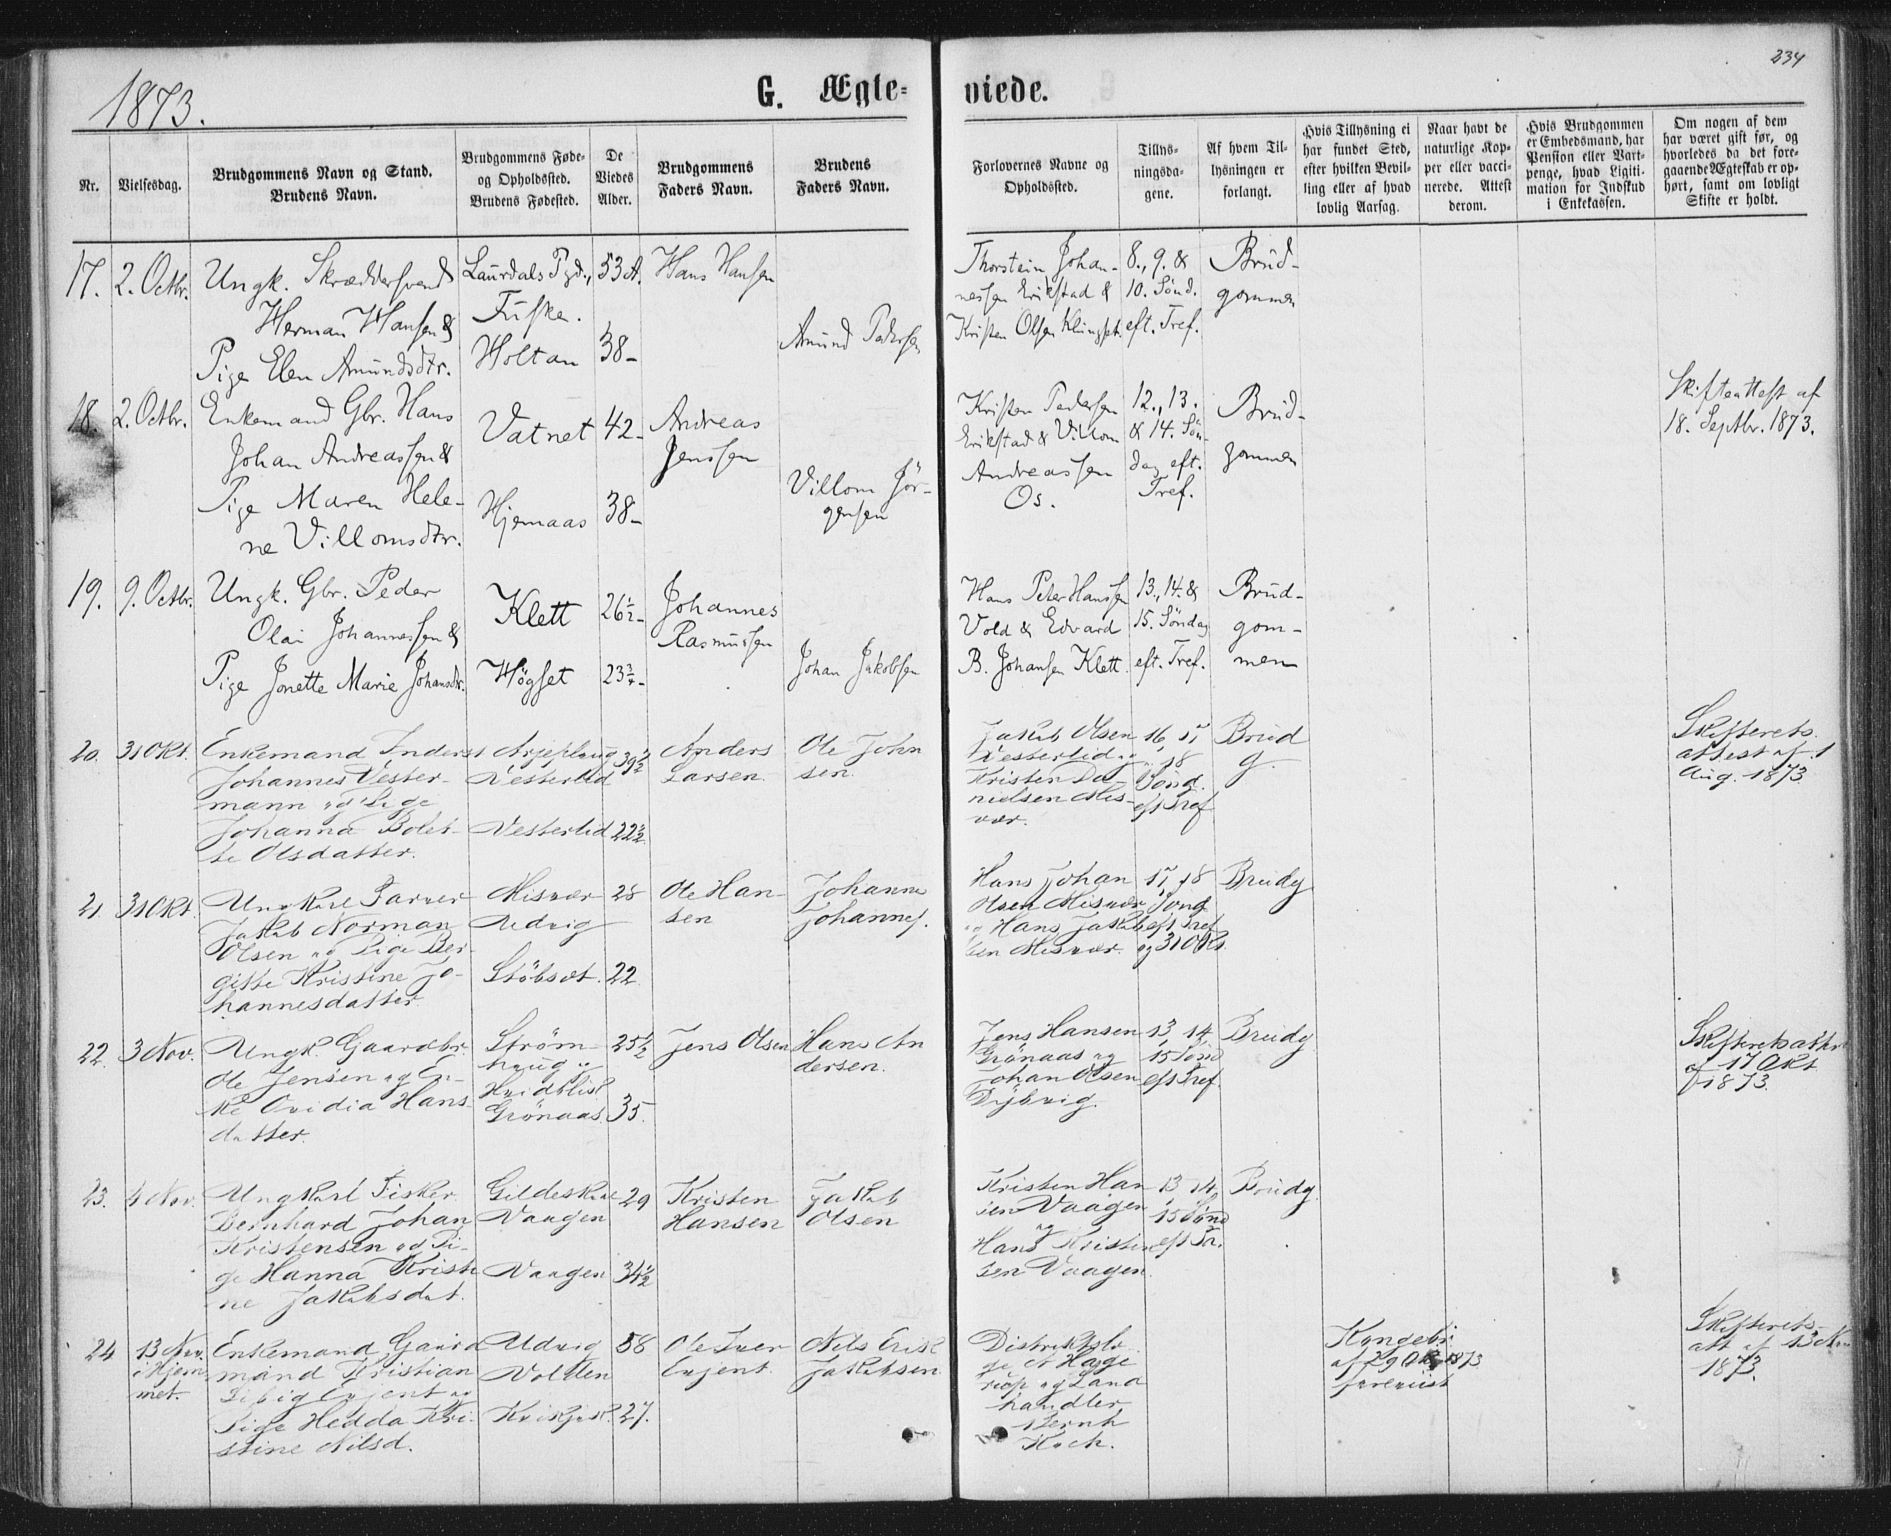 234
1873.
G. Ægte-
viede.
Nr.
Vielsesdag.
Brudgommens Navn og Stand.
Brudens Navn.
Brudgommens Føde-
og Opholdssted.
Brudens Fødested.
De
Viedes
Alder.
Brudgommens
Faders Navn.
Brudens
Faders Navn.
Forlovernes Navne og
Opholdssted.
Tillys-
ningsda-
gene.
Af hvem Til-
lysningen er
forlangt.
Hvis Tillysning ei
har fundet Sted,
efter hvilken Bevil-
ling eller af hvad
lovlig Aarsag.
Naar havt de
naturlige Kop-
per eller vacci-
nerede. Attest
derom.
Hvis Brudgommen
er Embedsmand, har
Pension eller Vart-
penge, hvad Ligiti-
mation for Indskud
i Enkekassen.
Om nogen af dem
har været gift før, og
hvorledes da det fore-
gaaende Ægteskab er op-
hørt, samt om lovligt
Skifte er holdt.
17.
2. Octbr.
Ungk. Skrædersvend
Herman Hansen &
Pige Elen Amundsdtr.
Laurdals Pgd.,
Fuske.
Holtan
53 A.
38-
Hans Hansen
Amund Pedersen
Thorstein Johan-
nessen Erikstad &
Kristen Olsen Klungset
8., 9. &
10. Sønd.
eft. Tref.
Brud-
gommen
18.
2. Octbr.
Enkemand Gbr. Hans
Johan Andreassen &
Pige Maren Hele-
ne Villomsdtr.
Vatnet
Hjemaas
42-
38-
Andreas
Jenssen
Villom Jör-
gensen
Kristen Pedersen
Erikstad & Villom
Andreassen
Os.
12., 13.
& 14. Søn-
dag eft.
Tref.
Brud-
gommen
Skifteattest af
18. Septbr. 1873.
19.
9. Octbr.
Ungk. Gbr. Peder
Olai Johannessen &
Pige Jonette Marie Johansdtr.
Klett
Högset
26½-
23¾-
Johannes
Rasmussen
Johan Jakobsen
Hans Peter Hanssen
Vold & Edvard
B. Johansen Klett
13., 14. &
15. Söndag
eft. Tref.
Brud-
gom-
men
20.
31 Okt.
Enkemand Inderst
Johannes Vester-
mann og Pige
Johanna Bolet-
te Olsdatter.
Arjeplaug
Vesterlid
Vesterlid
39½
22½
Anders
Larsen
Ole John
sen
Jakob Olsen
Vesterlid og
Kristen Da-
nielsen Mis-
vær.
16, 17
18
Sönd.
eft Tref
Brud
g.
Skifterets-
attest af 1
Aug. 1873
21.
31 Okt.
Ungkarl
Jakob Norman
Olsen og Pige Ber-
gitte Kristine Jo-
hannesdatter
Misvær
Udvig
Stöbset.
28
22
Ole Han
sen
Johannes
Johannes.
Hans Johan
Olsen Misvær
og Hans Jakob
sen Misvær
17, 18
Sönd
eft Tref
og 31 Okt
Brudg
22.
3 Nov.
Ungk. Gaardbr.
Ole Jensen og En-
ke Ovidia Hans-
datter.
Ström-
haug
Grönaas
25½
35.
Jens Olsen
Hans An
dersen.
Jens Hansen
Grönaas og
Johan Olsen
Dybvig.
13, 14,
15 Sönd
eft Tref.
Brudg
Skifteretsattest
af 17 Okt
1873.
23.
4 Nov.
Ungkarl Fisker
Bernhard Johan
Kristensen og Pi-
ge Hanna Kristi
ne Jakobsdat.
Gildeskaal
Vaagen
Vaagen
29
34½
Kristen
Hansen
Jakob
Olsen
Kristen Han
sen Vaagen
og
Hans Kristen
sen Vaagen.
13 14,
15 Sönd
eft Tr.
Brudg.
24
13 Nov.
i Hjem
met.
Enkemand Gaard
mand Kristian
Evjent og
Pige Hedda Kri-
stine Nilsd.
Udvig
Volden
58
27.
Ole Iver
Evjent.
Nils Erik
Jakobsen
Distriktslæ
ge
og Land
handler
Bernh
Koch.
Kongebr.
af 29 Okt 1873
forevist
Skifterets-
att af 13 Nov
1873.